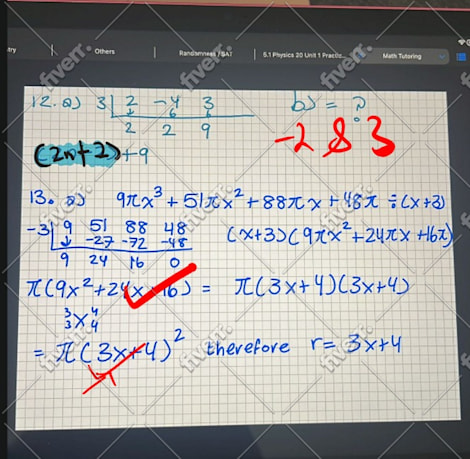 Others
Randomness / SAT
5.1 Physics 20 Unit 1 Practic...
Math Tutoring
12. a) 3| 2 -4 3
6 6
2 2 9
b) = ?
-2 & 3
(2n+2)+9
13. a) 9πx³ + 51πx² + 88πx + 48π ÷ (x+3)
-3| 9 51 88 48
↓ -27 -72 -48
9 24 16 0
(x+3)(9πx² + 24πx + 16π)
π(9x² + 24x + 16) = π(3x+4)(3x+4)
3 x 4
3 4
= π(3x+4)² therefore r = 3x+4
fiverr.